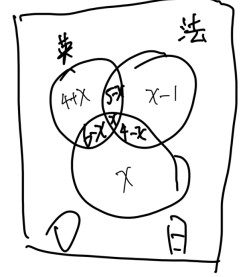 英 法
4+x 5-x x-1
x
6-x 4-x
x
日